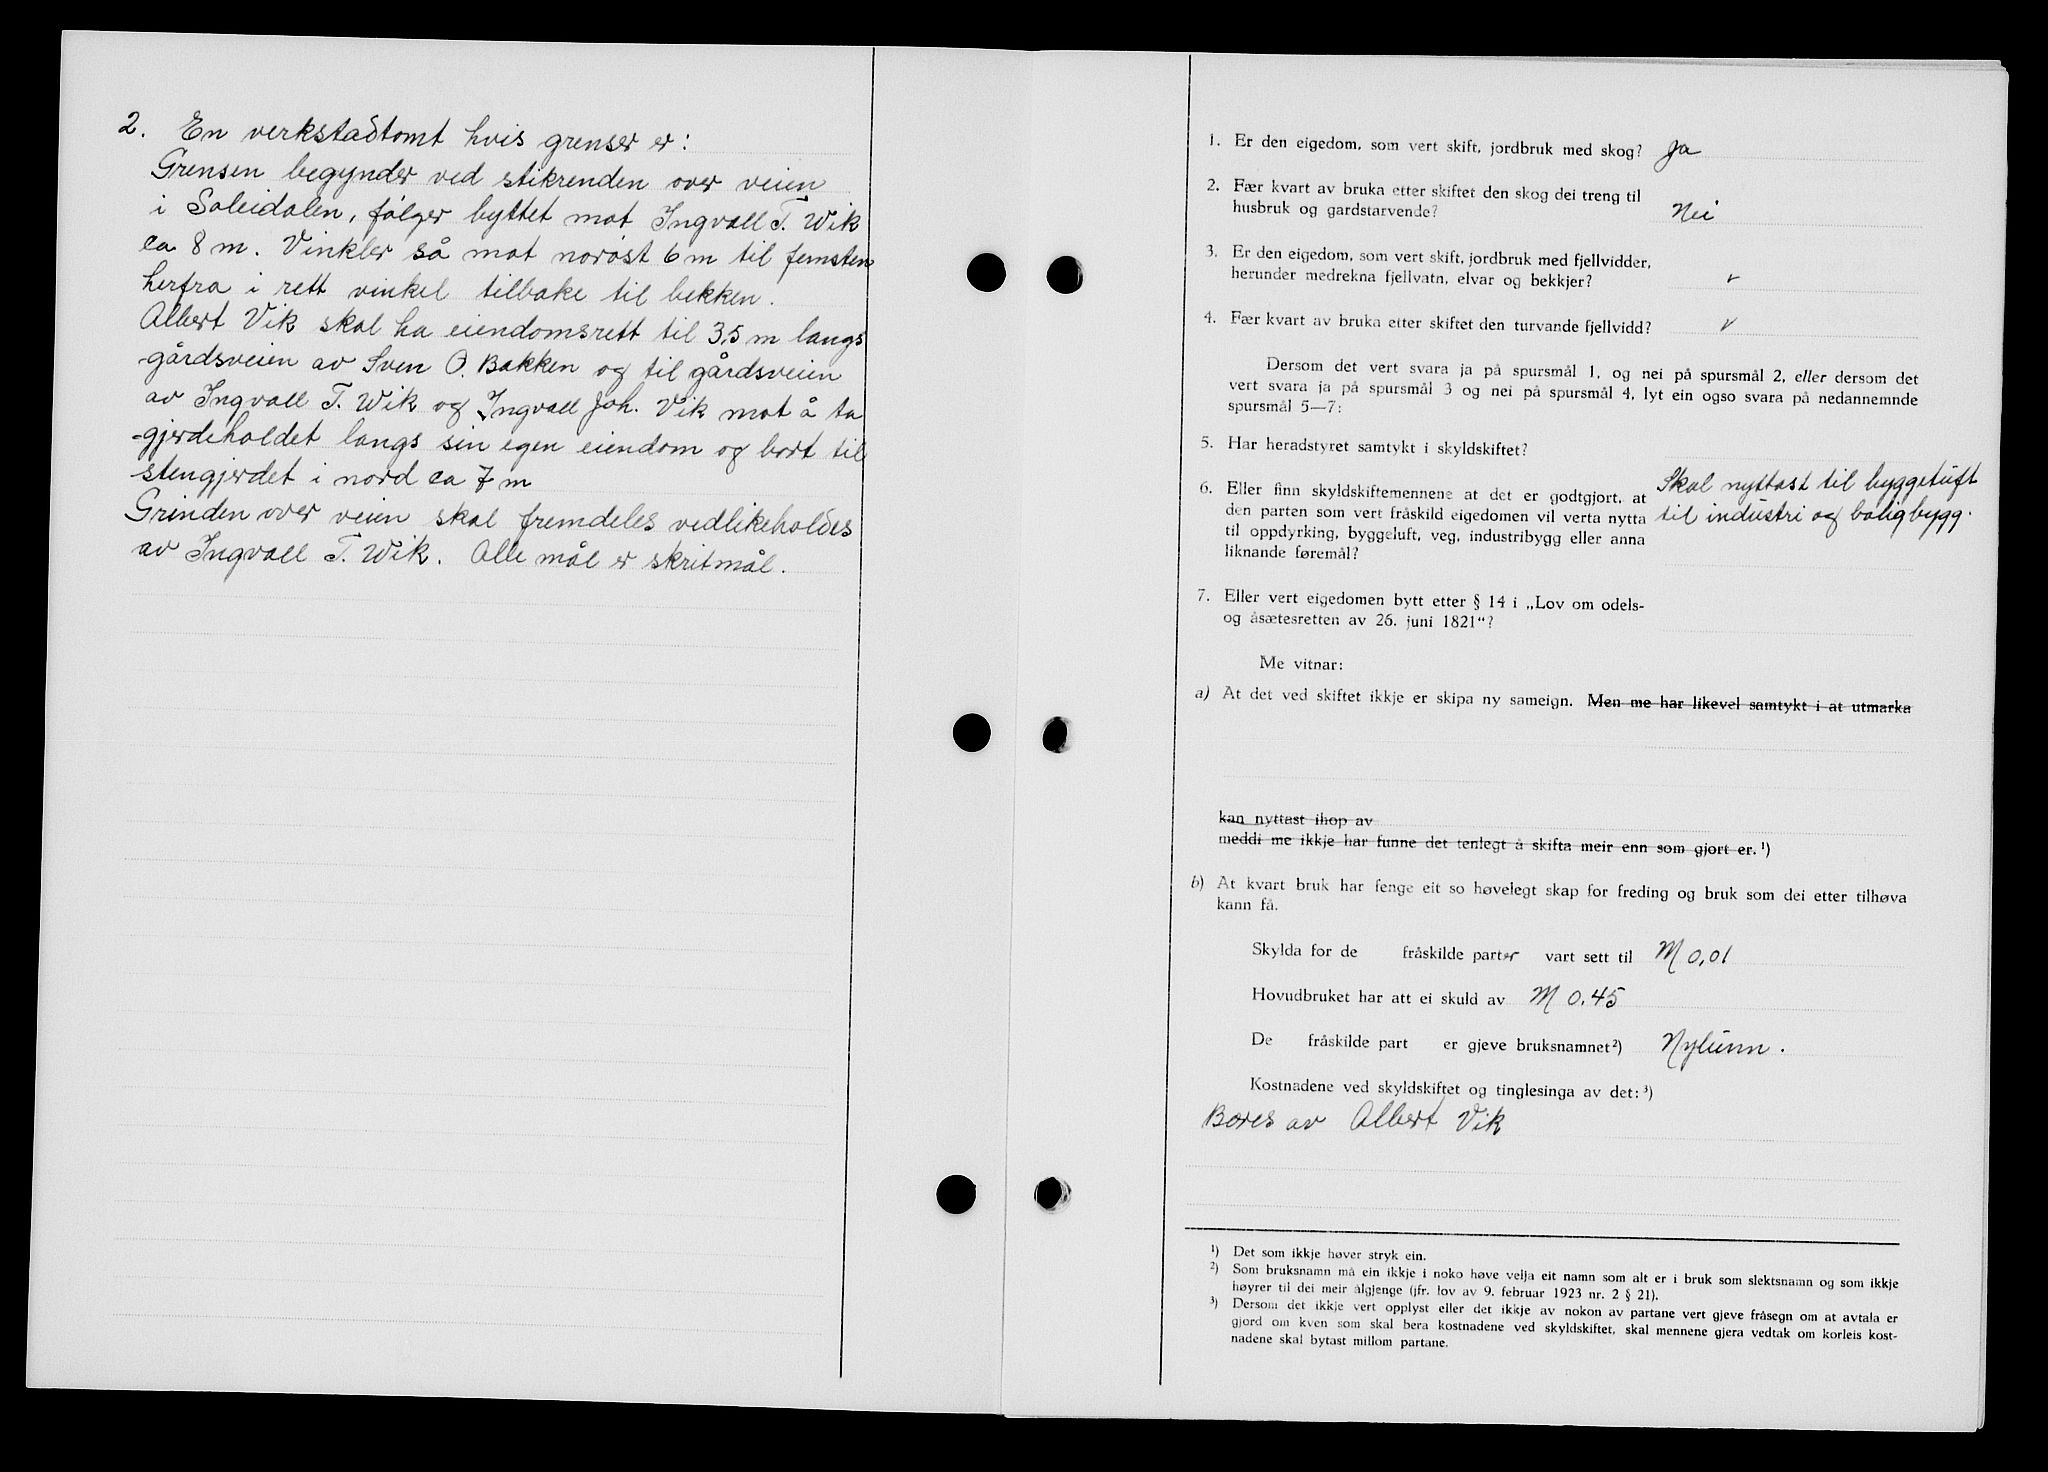 2. En verkstadtomt hvis grenser er:
Grensen begynder ved stikrenden over veien
i Soleidalen, følger byttet mot Ingvall T. Wik
ca 8 m. Vinkler så mot norøst 6 m til femsten
herfra i rett vinkel tilbake til bekken.
Albert Vik skal ha eiendomsrett til 3,5 m langs
gårdsveien av Sven O. Bakken og til gårdsveien
av Ingvall T. Wik og Ingvall Joh. Vik mot å ta
gjerdeholdet langs sin egen eiendom og bort til
stengjerdet i nord ca 7 m
Grinden over veien skal fremdeles vedlikeholdes
av Ingvall T. Wik. Alle mål er skritmål.
1. Er den eigedom, som vert skift, jordbruk med skog? Ja
2. Fær kvart av bruka etter skiftet den skog dei treng til
husbruk og gardstarvende? Nei
3. Er den eigedom, som vert skift, jordbruk med fjellvidder,
herunder medrekna fjellvatn, elvar og bekkjer?
4. Fær kvart av bruka etter skiftet den turvande fjellvidd?
Dersom det vert svara ja på spursmål 1, og nei på spursmål 2, eller dersom det
vert svara ja på spursmål 3 og nei på spursmål 4, lyt ein ogso svara på nedannemnde
spursmål 5—7:
5. Har heradstyret samtykt i skyldskiftet?
6. Eller finn skyldskiftemennene at det er godtgjort, at
den parten som vert fråskild eigedomen vil verta nytta
til oppdyrking, byggeluft, veg, industribygg eller anna
liknande føremål?
Skal nyttast til byggetuft
til industri og boligbygg.
7. Eller vert eigedomen bytt etter § 14 i „Lov om odels-
og åsætesretten av 26. juni 1821"?
Me vitnar:
a) At det ved skiftet ikkje er skipa ny sameign. Men me har likevel samtykt i at utmarka
kan nyttast ihop av
meddi me ikkje har funne det tenlegt å skifta meir enn som gjort er. ¹)
b) At kvart bruk har fenge eit so høvelegt skap for freding og bruk som dei etter tilhøva
kann få.
Skylda for de fråskilde parter vart sett til M 0,01
Hovudbruket har att ei skuld av M 0,45
De fråskilde part er gjeve bruksnamnet ²) Nylunn.
Kostnadene ved skyldskiftet og tinglesinga av det: ³)
Bæres av Albert Vik
¹) Det som ikkje høver stryk ein.
²) Som bruksnamn må ein ikkje i noko høve velja eit namn som alt er i bruk som slektsnamn og som ikkje
høyrer til dei meir ålgjenge (jfr. lov av 9. februar 1923 nr. 2 § 21).
³) Dersom det ikkje vert opplyst eller det ikkje av nokon av partane vert gjeve fråsegn om at avtala er
gjord om kven som skal bera kostnadene ved skyldskiftet, skal mennene gjera vedtak om korleis kost-
nadene skal bytast millom partane.